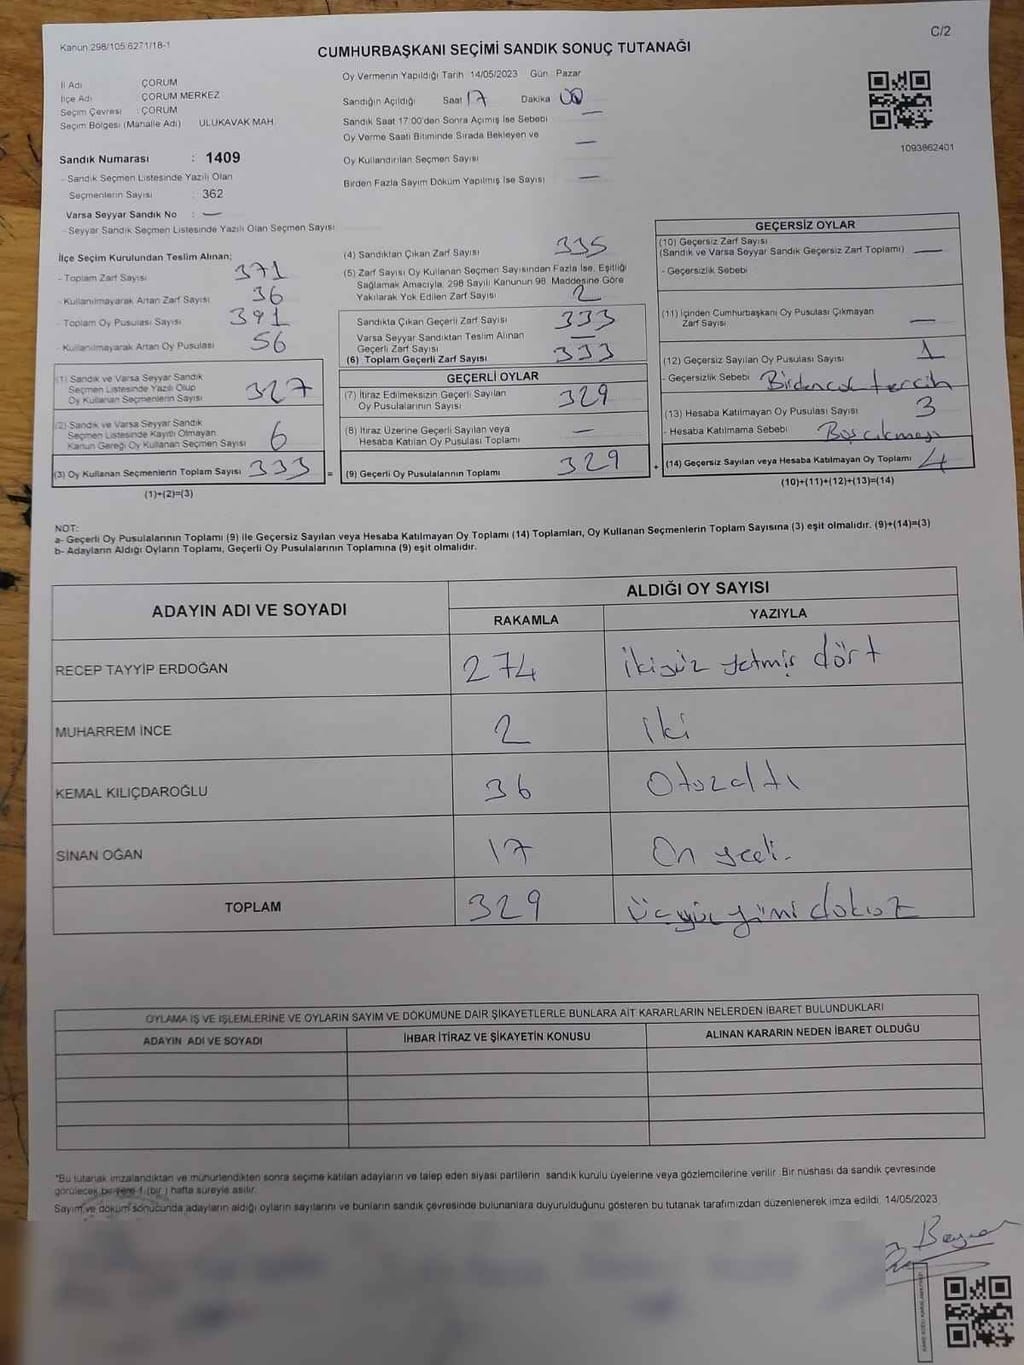 Kanun 298/105 6271/18-1
C/2
CUMHURBAŞKANI SEÇİMİ SANDIK SONUÇ TUTANAĞI
İl Adı ÇORUM
İlçe Adı ÇORUM MERKEZ
Seçim Çevresi : ÇORUM
Seçim Bölgesi (Mahalle Adı) ULUKAVAK MAH.
Sandık Numarası : 1409
- Sandık Seçmen Listesinde Yazılı Olan
Seçmenlerin Sayısı : 362
Varsa Seyyar Sandık No : —
- Seyyar Sandık Seçmen Listesinde Yazılı Olan Seçmen Sayısı
Oy Vermenin Yapıldığı Tarih 14/05/2023 Gün Pazar
Sandığın Açıldığı Saat 17 Dakika 00
Sandık Saat 17:00'den Sonra Açımış İse Sebebi —
Oy Verme Saati Bitiminde Sırada Bekleyen ve
Oy Kullandırılan Seçmen Sayısı —
Birden Fazla Sayım Döküm Yapılmış İse Sayısı —
1093862401
İlçe Seçim Kurulundan Teslim Alınan;
- Toplam Zarf Sayısı 371
- Kullanılmayarak Artan Zarf Sayısı 36
- Toplam Oy Pusulası Sayısı 391
- Kullanılmayarak Artan Oy Pusulası 56
(1) Sandık ve Varsa Seyyar Sandık
Seçmen Listesinde Yazılı Olup
Oy Kullanan Seçmenlerin Sayısı 327
(2) Sandık ve Varsa Seyyar Sandık
Seçmen Listesinde Kayıtlı Olmayan
Kanun Gereği Oy Kullanan Seçmen Sayısı 6
(3) Oy Kullanan Seçmenlerin Toplam Sayısı 333 =
(1)+(2)=(3)
(4) Sandıktan Çıkan Zarf Sayısı 335
(5) Zarf Sayısı Oy Kullanan Seçmen Sayısından Fazla İse, Eşitliği
Sağlamak Amacıyla, 298 Sayılı Kanunun 98. Maddesine Göre
Yakılarak Yok Edilen Zarf Sayısı 2
Sandıkta Çıkan Geçerli Zarf Sayısı 333
Varsa Seyyar Sandıktan Teslim Alınan
Geçerli Zarf Sayısı —
(6) Toplam Geçerli Zarf Sayısı 333
GEÇERLİ OYLAR
(7) İtiraz Edilmeksizin Geçerli Sayılan
Oy Pusulalarının Sayısı 329
(8) İtiraz Üzerine Geçerli Sayılan veya
Hesaba Katılan Oy Pusulası Toplamı —
(9) Geçerli Oy Pusulalarının Toplamı 329 +
GEÇERSİZ OYLAR
(10) Geçersiz Zarf Sayısı
(Sandık ve Varsa Seyyar Sandık Geçersiz Zarf Toplamı) —
- Geçersizlik Sebebi
(11) İçinden Cumhurbaşkanı Oy Pusulası Çıkmayan
Zarf Sayısı —
(12) Geçersiz Sayılan Oy Pusulası Sayısı 1
- Geçersizlik Sebebi Birden çok tercih
(13) Hesaba Katılmayan Oy Pusulası Sayısı 3
- Hesaba Katılmama Sebebi Boş
(14) Geçersiz Sayılan veya Hesaba Katılmayan Oy Toplamı 4
(10)+(11)+(12)+(13)=(14)
NOT:
a- Geçerli Oy Pusulalarının Toplamı (9) ile Geçersiz Sayılan veya Hesaba Katılmayan Oy Toplamı (14) Toplamları, Oy Kullanan Seçmenlerin Toplam Sayısına (3) eşit olmalıdır. (9)+(14)=(3)
b- Adayların Aldığı Oyların Toplamı, Geçerli Oy Pusulalarının Toplamına (9) eşit olmalıdır.
ADAYIN ADI VE SOYADI
ALDIĞI OY SAYISI
RAKAMLA YAZIYLA
RECEP TAYYİP ERDOĞAN 274 ikiyüz yetmiş dört
MUHARREM İNCE 2 iki
KEMAL KILIÇDAROĞLU 36 Otuzaltı
SİNAN OĞAN 17 On yedi.
TOPLAM 329 üçyüz yirmi dokuz
OYLAMA İŞ VE İŞLEMLERİNE VE OYLARIN SAYIM VE DÖKÜMÜNE DAİR ŞİKAYETLERLE BUNLARA AİT KARARLARIN NELERDEN İBARET BULUNDUKLARI
ADAYIN ADI VE SOYADI İHBAR İTİRAZ VE ŞİKAYETİN KONUSU ALINAN KARARIN NEDEN İBARET OLDUĞU
*Bu tutanak imzalandıktan ve mühürlendikten sonra seçime katılan adayların ve talep eden siyasi partilerin sandık kurulu üyelerine veya gözlemcilerine verilir. Bir nüshası da sandık çevresinde
görülecek bir yere 1 (bir) hafta süreyle asılır.
Sayım ve döküm sonucunda adayların aldığı oyların sayılarını ve bunların sandık çevresinde bulunanlara duyurulduğunu gösteren bu tutanak tarafımızdan düzenlenerek imza edildi. 14/05/2023